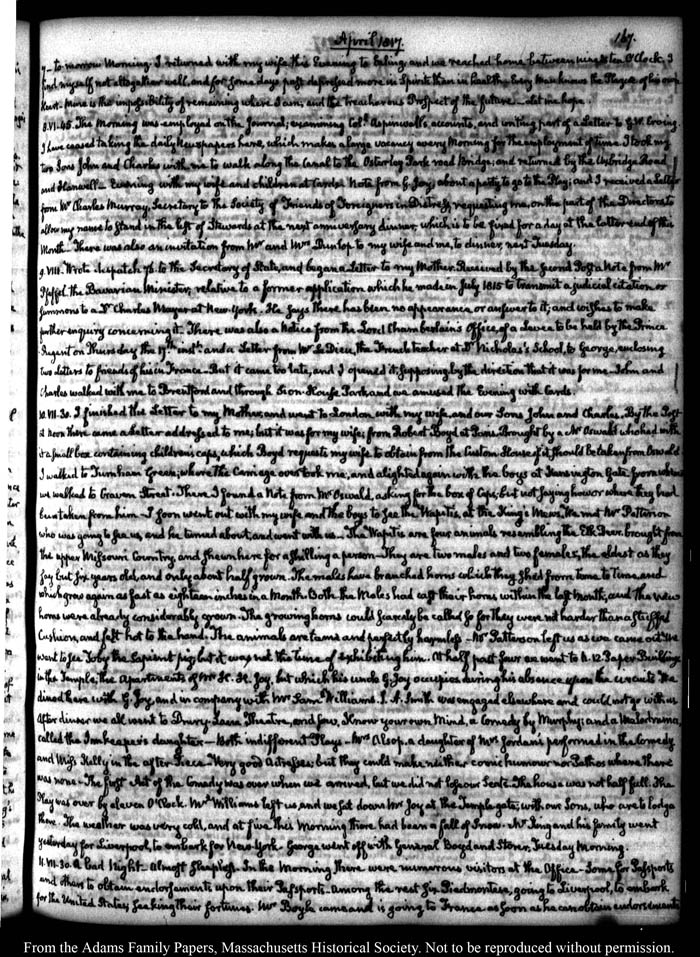 April 1817.
167.
7— to-morrow Morning. I returned with my wife this Evening to Ealing, and we reached home between nine & ten O'Clock. I
find myself not altogether well, and for some days past depressed more in Spirits than in health. Every Man knows the Plague of his own
Heart. Mine is the impossibility of remaining where I am, and the treacherous Prospect of the future. Let me hope.
8. VI. 45. The Morning was employed on the Journal; examining Col. Aspinwall's accounts, and writing part of a Letter to G. W. Erving.
I have ceased taking the daily Newspapers here, which makes a large vacancy every Morning for the employment of time. I took my
two Sons John and Charles with me to walk along the Canal to the Osterley Park road Bridge; and returned by the Uxbridge Road
and Hanwell— Evening with my wife and children at Cards. Note from G. Joy, about a party to go to the Play; and I received a Letter
from Mr Charles Murray, Secretary to the Society of Friends of Foreigners in Distress, requesting me, on the part of the Directors to
allow my name to stand in the list of Stewards at the next anniversary dinner, which is to be fixed for a day at the latter end of this
Month— There was also an invitation from Mr and Mrs Dunlop to my wife and me, to dinner, next Tuesday.
9. VIII. Wrote dispatch 76. to the Secretary of State, and began a Letter to my Mother. Received by the Second Post a Note from Mr
Pfeffel the Bavarian Minister, relative to a former application which he made in July 1815 to transmit a judicial citation or
summons to a Dr Charles Mayer at New-York. He says there has been no appearance or answer to it; and wishes to make
further enquiry concerning it. There was also a Notice from the Lord Chamberlain's Office, of a Levee to be held by the Prince
Regent on Thursday the 17th inst. and a Letter from Mr Le Dieu, the French teacher at Dr Nicholas's School, to George, enclosing
two Letters to friends of his in France— But it came too late, and I opened it, supposing by the direction that it was for me— John and
Charles walked with me to Brentford and through Sion-House Park, and we amused the Evening with Cards.
10. VII. 30. I finished the Letter to my Mother, and went to London with my wife, and our Sons John and Charles. By the Post
at Noon there came a Letter addressed to me; but it was for my wife; from Robert Boyd at Paris. Brought by a Mr Oswald who had with
it a small box containing children's caps, which Boyd requests my wife, to obtain from the Custom House if it should be taken from Oswald
I walked to Turnham Green, where the Carriage overtook me, and alighted again with the boys at Kensington Gate, from whence
we walked to Craven Street. There I found a Note from Mr Oswald, asking for the box of Caps; but not saying how or where they had
been taken from him— I soon went out with my wife and the boys to see the Wapitis, at the King's Mews. We met Mr Patterson
who was going to see us, and he turned about, and went with us. The Wapitis are four animals resembling the Elk Deer, brought from
the upper Missouri Country, and shewn here for a shilling a person. They are two males and two females, the eldest as they
say but six years old, and only about half grown. The males have branched horns which they shed from time to time, and
which grow again as fast as eighteen inches in a Month. Both the Males had cast their horns within the last Month, and the new
horns were already considerably grown. The growing horns could scarcely be called so for they were not harder than a stuffed
Cushion, and felt hot to the hand. The animals are tame and perfectly harmless— Mr Patterson left us as we came out. We
went to see Toby the Sapient pig; but it was not the time of exhibiting him. At half past four we went to N. 12. Paper Buildings
in the Temple, the apartments of Mr H. H. Joy, but which his uncle G. Joy occupies during his absence upon the circuit. We
dined here with G. Joy, and in company with Mr Saml Williams. J. A. Smith was engaged elsewhere and could not go with us
After dinner we all went to Drury-Lane Theatre, and saw, Know your own Mind, a Comedy by Murphy; and a Melodrama,
called the Innkeeper's daughter— Both indifferent Plays— Mrs Alsop, a daughter of Mrs Jordan's performed in the Comedy
and Miss Kelly in the after Piece— Very good Actresses, but they could make neither comic humour nor Pathos where there
was none— The first Act of the Comedy was over when we arrived, but we did not lose our Seats. The house was not half full. The
Play was over by eleven O'Clock. Mr Williams left us, and we sat down Mr Joy at the Temple gate, with our Sons, who are to lodge
there. The weather was very cold, and at five this Morning there had been a fall of Snow— Mr King and his family went
yesterday for Liverpool, to embark for New-York. George went off with General Boyd and Storer, Tuesday Morning.
11. VII. 30. A bad Night— Almost Sleepless— In the Morning there were numerous visitors at the Office— Some for Passports
and others to obtain endorsements upon their Passports. Among the rest six Piedmontese, going to Liverpool, to embark
for the United States, seeking their fortunes. Mr Boyle came and is going to France as soon as he can obtain endorsements
From the Adams Family Papers, Massachusetts Historical Society. Not to be reproduced without permission.